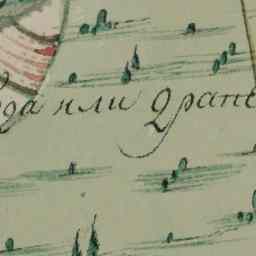 да или Драпе